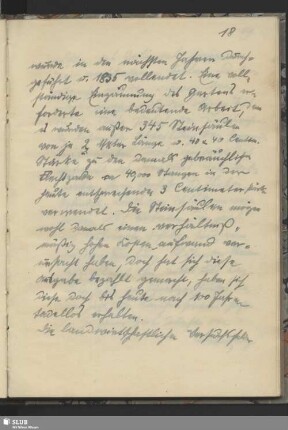 18
wurde in den nächsten Jahren durch-
geführt u. 1835 vollendet. Eine voll-
ständige Umzäunung des Gartens er-
forderte eine bedeutende Arbeit, denn
es wurden außer 345 Steinsäulen
von je 2 Meter Länge u. 40 x 40 Centim.
Stärke zu den damals gebräuchlichen
an 4900 Stangen in der
Stärke entsprechender 3 Centimeter stark
verwendet. Die Steinsäulen mögen
wohl damals einen verhältniß-
mäßig hohen Kosten aufwand ver-
ursacht haben, doch hat sich diese
Ausgabe bezahlt gemacht, haben sich
diese doch bis heute nach 100 Jahren
tadellos erhalten.
Die landwirtschaftlichen Versuchsfelder
SLUB
Wir führen Wissen.